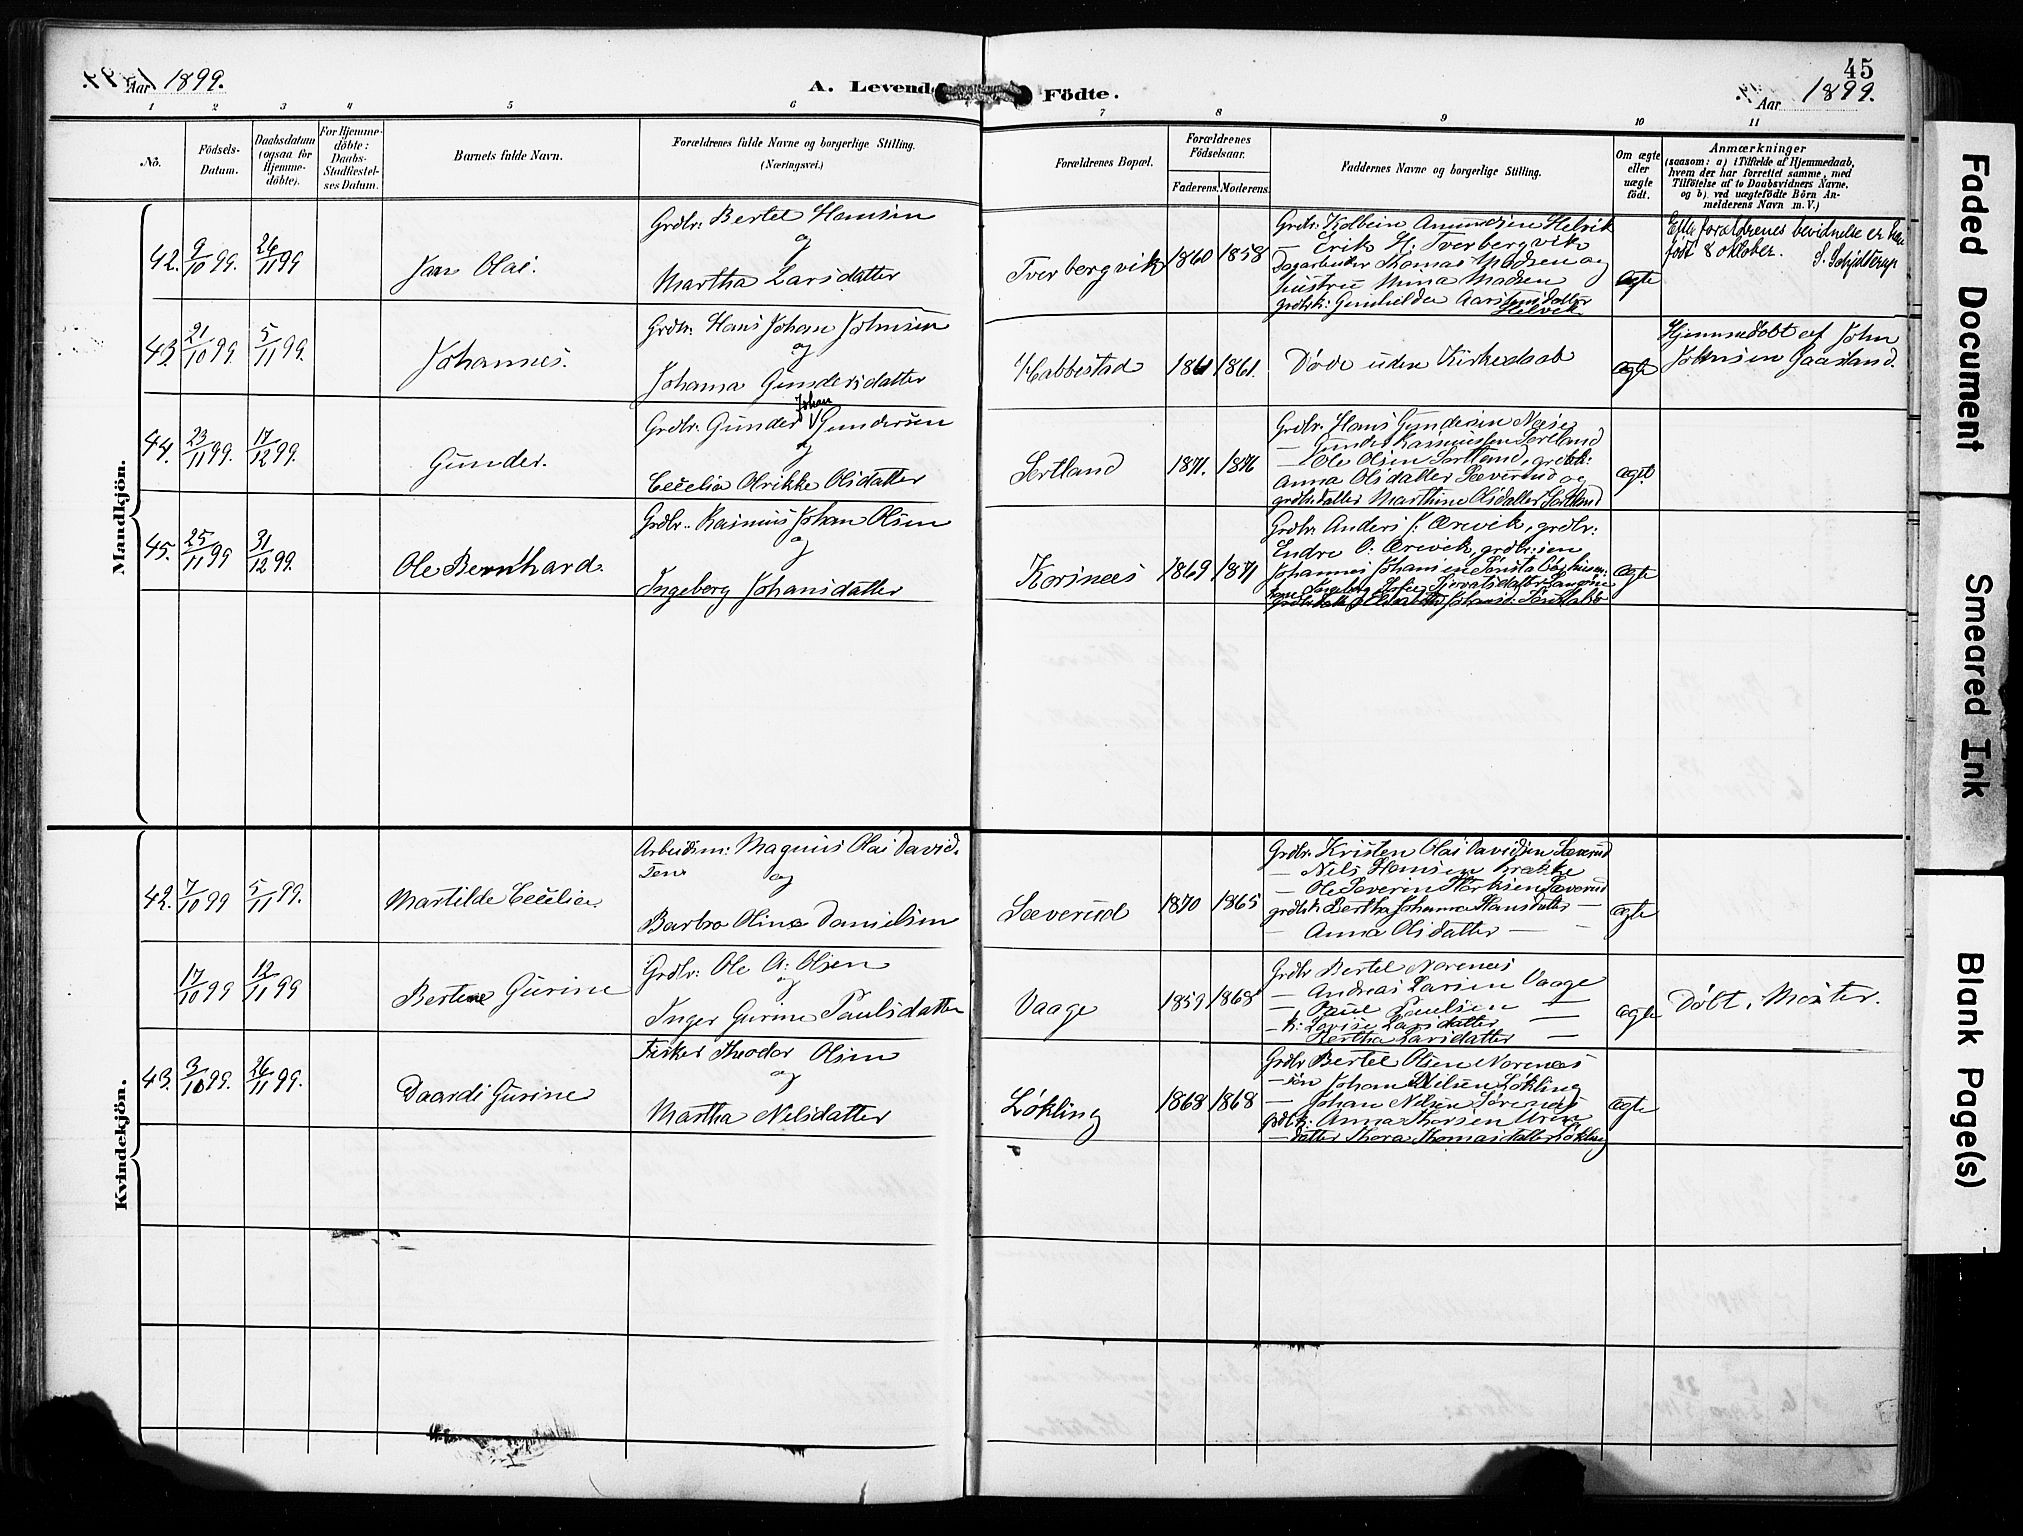 45
Aar 1899.
A. Levende Födte.
Aar 1899.
1 2 3 4 5 6 7 8 9 10 11
No.
Födsels-Datum.
Daabsdatum (ogsaa for Hjemme-döbte).
For Hjemme-döbte: Daabs-Stadfæstel-ses Datum.
Barnets fulde Navn.
Forældrenes fulde Navne og borgerlige Stilling.
(Næringsvei.)
Forældrenes Bopæl.
Forældrenes Födselsaar.
Faderens. Moderens.
Faddernes Navne og borgerlige Stilling.
Om ægte eller uægte født.
Anmærkninger
(saasom: a) i Tilfælde af Hjemmedaab,
hvem der har forrettet samme, med
Tilföielse af to Daabsvidners Navne,
og b) ved uægtefödte Börn An-
melderens Navn m. V.)
Mandkjön.
42. 9/10 99. 26/11 99
Jan Olai.
Grdbr. Bertel Hansen
og
Martha Larsdatter
Tverbergvik 1860 1858
Grdbr. Kolbein Amundsen Helvik
— Erik H. Tverbergvik
Dagarbeider Thomas Madsen og
hustru Mina Madsen
grdbrk: Gunhilda Aarstensdatter
Helvik
ægte
Efter forældrenes bevidnelse er han
født 8 oktober. S. Schjelderup
43. 21/10 99. 5/11 99.
Johannes.
Grdbr. Hans Johan Johnsen
og
Johanna Gundersdatter
Habbestad 1861 1861.
Døde uden Kirkedaab
ægte
Hjemmedøbt af John
Johnsen Gaasland.
44. 23/11 99. 17/12 99.
Gunder.
Johan
Grdbr. Gunder Gundersen
og
Cecelia Olrikke Olsdatter
Sertland 1871. 1876
Grdbr. Hans Gundersen Næse
— Gunder Rasmussen Sertland
— Ole Olsen Sortland, grdbrk:
Anna Olsdatter Sæverud og
grdbrdatter Marthine Olsdatter Sortland
ægte
45. 25/11 99 31/12 99.
Ole Bernhard.
Grdbr. Rasmus Johan Olsen
og
Ingeborg Johansdatter
Korsnees 1869 1871
Grdbr. Anders J. Ærevik, grdbr:
Endre O. Ærevik, grdbr:sen
Johannes Johansen
ægte
Kvindekjön.
42. 7/10 99 5/11 99.
Martilde Cecilie.
Arbeidsm: Magnus Olai David-
sen og
Barbro Oline Danielsen
Sæverud 1870 1865
Grdbr. Kristen Olai Davidsen Sæverud
— Nils Hansen Brække
— Ole Severin Sæverud
grdbrk: Bertha Johanna Hansdatter —
— Anna Olsdatter — —
ægte
17/10 99 12/11 99
Bertine Gurine
Grdbr. Ole A. Olsen
og
Inger Gurine Paulsdatter
Vaage 1859 1868
Grdbr Bertel Norenæs
— Andreas Larsen Vaage
— Paul Paulsen —
— k: Lovise Larsdatter —
Bertha Larsdatter —
ægte
Døbt i Møster.
43. 3/10 99. 26/11 99.
Daardi Gurine
Fisker Theodor Olsen
og
Martha Nilsdatter
Løkling 1868 1868
Grdbr Bertel Olsen Norenæs
— søn Johan Nilsen Løkling
— Johan Nilsen Sørenæs
grdbrk: Anna Thorsen Vren
— datter Thora Thomasdatter Løkling
ægte
Faded Document
Smeared Ink
Blank Page(s)